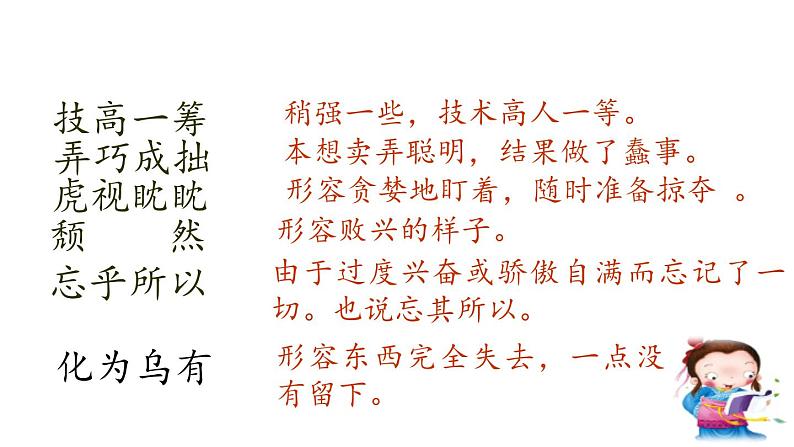 技高一筹 稍强一些，技术高人一等。
弄巧成拙 本想卖弄聪明，结果做了蠢事。
虎视眈眈 形容贪婪地盯着，随时准备掠夺 。
颓 然 形容败兴的样子。
忘乎所以 由于过度兴奋或骄傲自满而忘记了一
切。也说忘其所以。
化为乌有 形容东西完全失去，一点没
有留下。